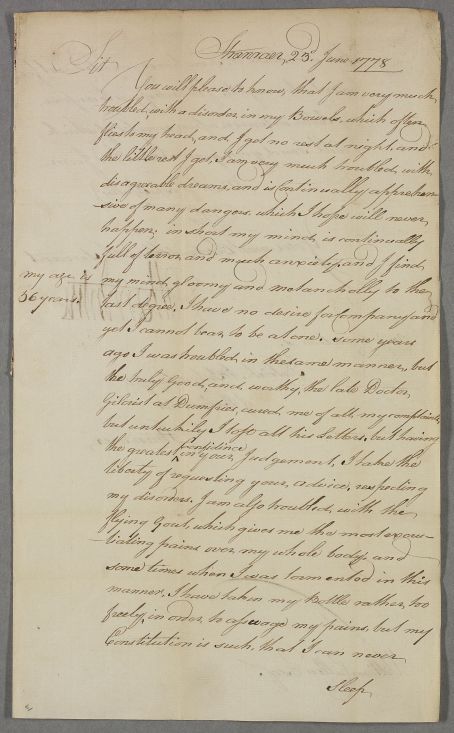 Stranraer, 23d. June 1778
Sir
You will please to know, that I am very much
troubled, with a disorder, in my Bowels, which often
flies to my head, and, I get no rest at night, and
the little rest I get, I am very much troubled, with
disagreable dreams, and is Continually apprehen
sive of many dangers, which I hope will never
happen; in short my mind, is continually
full of terror, and much anxiety, and I find
my mind, gloomy and melancholly to the
last degree, I have no desire for Company and
yet I cannot bear, to be alone. Some years
ago I was troubled, in the same manner, but
the truly Good, and, worthy, the late Doctor,
Gilcrist at Dumfries, cured, me of all, my complaints,
but unluckily I lost all his Letters, but having
the greatest Confidence in your, Judgement, I take the
liberty of requesting your, advice, respecting
my disorders, I am also troubled, with the
flying Gout, which gives me the most excru-
-tiating pains over, my whole body, and
some times when I was tormented in this
manner, I have taken my Bottle rather, too
freely, in order, to asswage my pains, but my
Constitution is such, that I can never
Sleep
my age is
56 years.